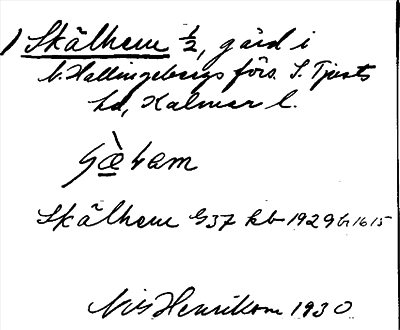 ) Skälhem ½, gård i
V. Hallingebergs förs. S. Tjusts
hd, Kalmar l.
Skälhem G37 kb 1929 h 16 15
Nils Henrikson 1930